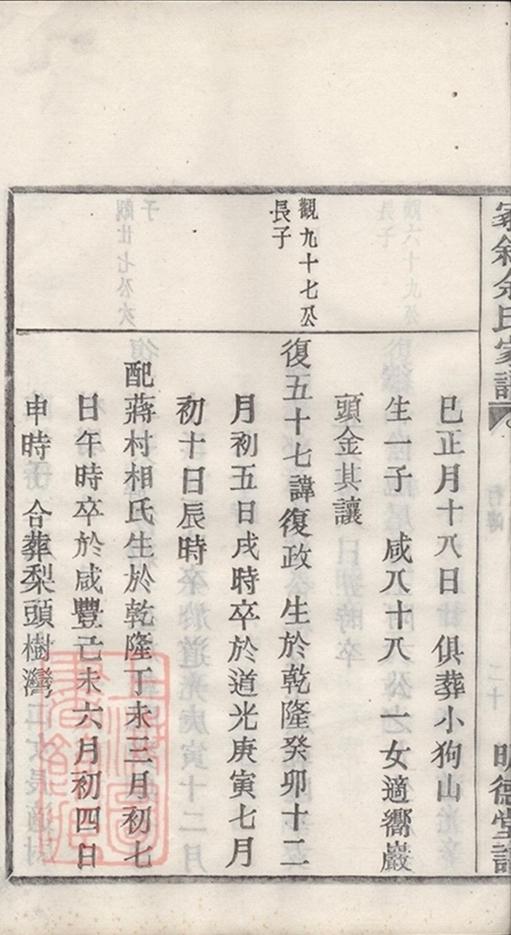 余氏家譜
明德堂
巳正月十八日 俱葬小狗山
生一子 咸八十八 一女適嚮巖
頭金其讓
觀九十七公
長子
復五十七諱復政 生於乾隆癸卯十二
月初五日戌時卒於道光庚寅七月
初十日辰時
配蔣村相氏生於乾隆丁未三月初七
日午時卒於咸豐己未六月初四日
申時 合葬梨頭樹灣